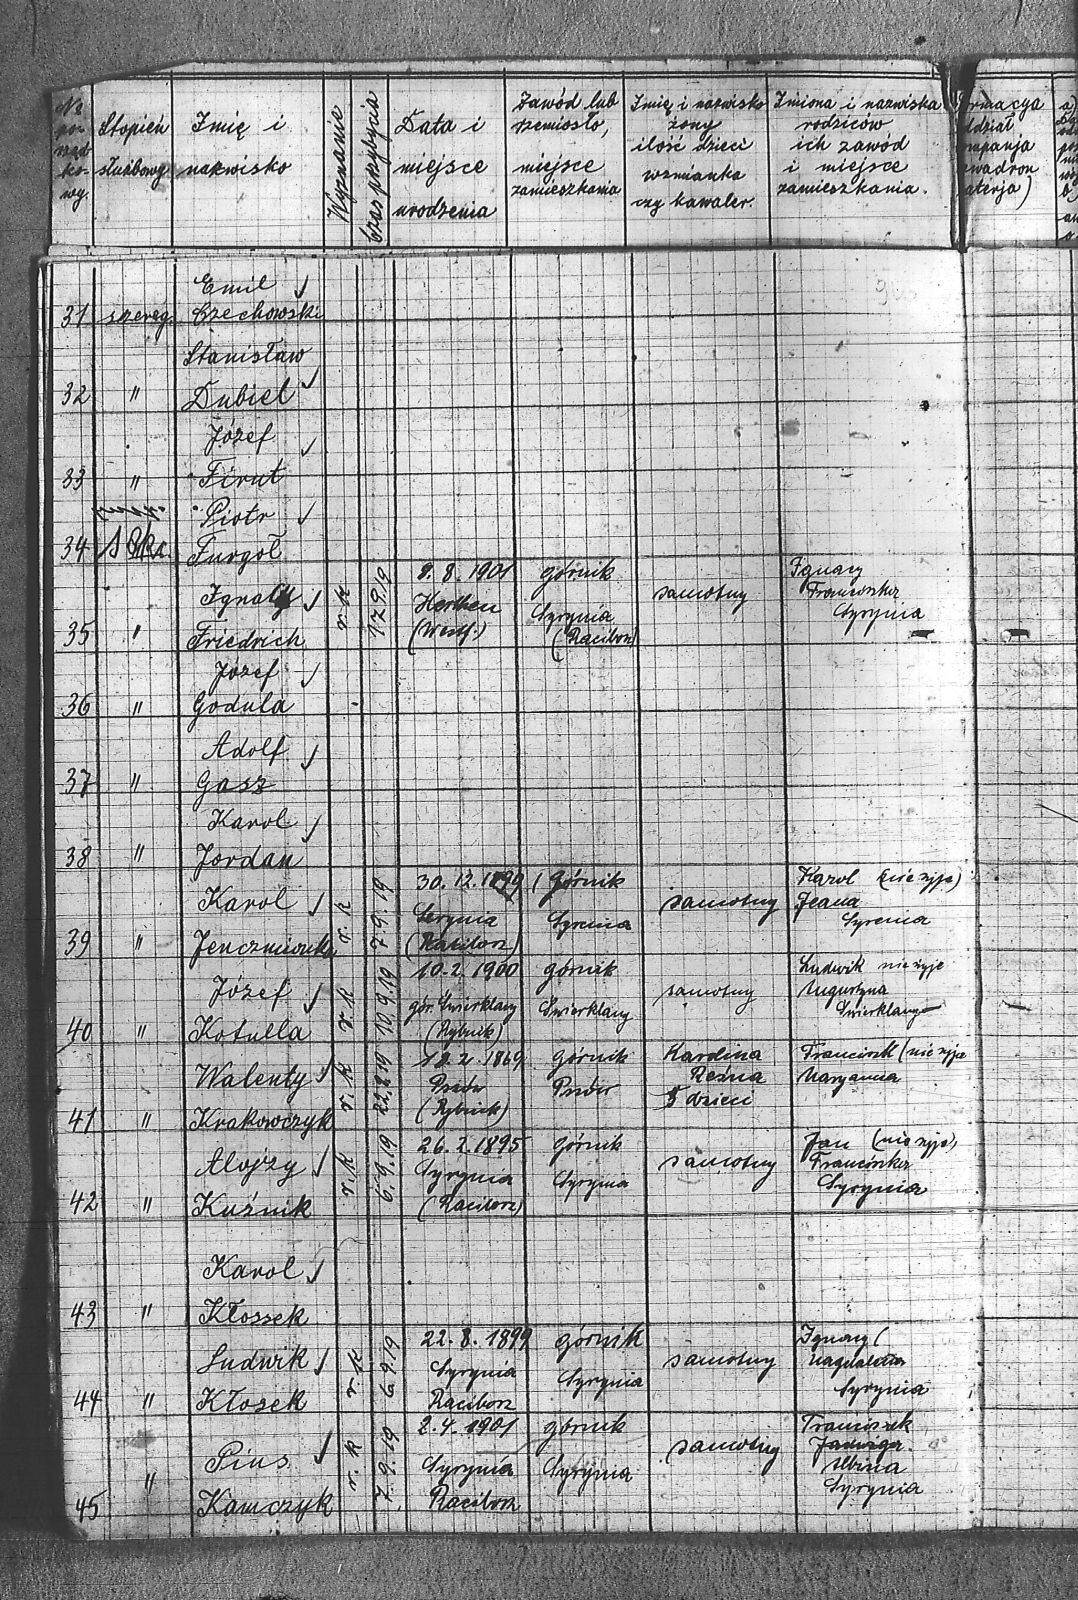 No porządkowy.
Stopień służbowy
Imię i nazwisko
Wyznanie
Czas przybycia
Data i miejsce urodzenia
Zawód lub rzemiosło, miejsce zamieszkania
Imię i nazwisko żony ilość dzieci wzmianka czy kawaler.
Imiona i nazwiska rodziców ich zawód i miejsce zamieszkania.
ormacya
ddział
mpanja
wadron
aterja)
Emil
31 szereg. Czechowski
Stanisław
32 " Dubiel
Józef
33 " Firut
Piotr
34 Furgoł
Ignacy r. k 17.9.19 8. 8. 1901 górnik samotny Ignacy
Herthen Syrynia Franciszka
35 " Friedrich (Westf.) (Racibórz) Syrynia
Józef
36 " Godula
Adolf
37 " Gasz
Karol
38 " Jordan
Karol r. k 7.9.19 30. 12. 1899 górnik samotny Karol (nie żyje)
Syrynia Syrenia Joana
39 " (Racibórz) Syrenia
Józef r. k 10.9.19 10. 2. 1900 górnik samotny Ludwik nie żyje
gór. Świerklany Świerklany Augustyna
40 " Kotulla (Rybnik) Świerklany
Walenty r. k 22.8.19 1869 górnik Karolina Franciszek (nie żyje
Pszów Pszów Reśna Maryanna
41 " Krakowczyk (Rybnik) 5 dzieci
Alojzy r. k 6.9.19 26. 2. 1895 górnik samotny Jan (nie żyje)
Syrynia Syrynia Franciszka
42 " Kuźnik (Racibórz) Syrynia
Karol
43 " Kłossek
Ludwik r. k 6.9.19 22. 8. 1899 górnik samotny Ignacy (
Syrynia Syrynia Magdalena
44 " Kłosek Racibórz Syrynia
Pius r. k 7.9.19 2. 4. 1901 górnik samotny Franciszek
Jadwiga
" Syrynia Syrynia Albina
45 Kawczyk Racibórz Syrynia